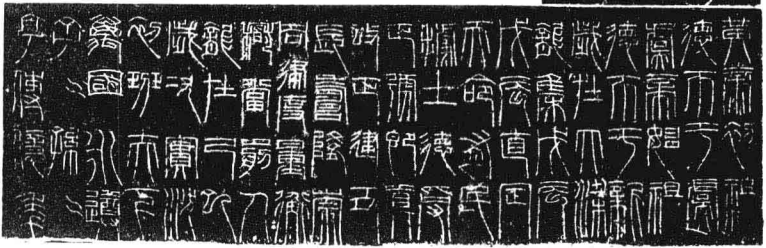 黃帝初祖
德帀于虞
虞帝始祖
德帀于新
歲在大梁
龍集戊辰
戊辰直定
天命有民
據土德受
正號即真
改正建丑
長壽隆崇
同律度量衡
稽當前人
龍在己巳
歲次實沈
初班天下
萬國永遵
子子孫孫
亨傳億年